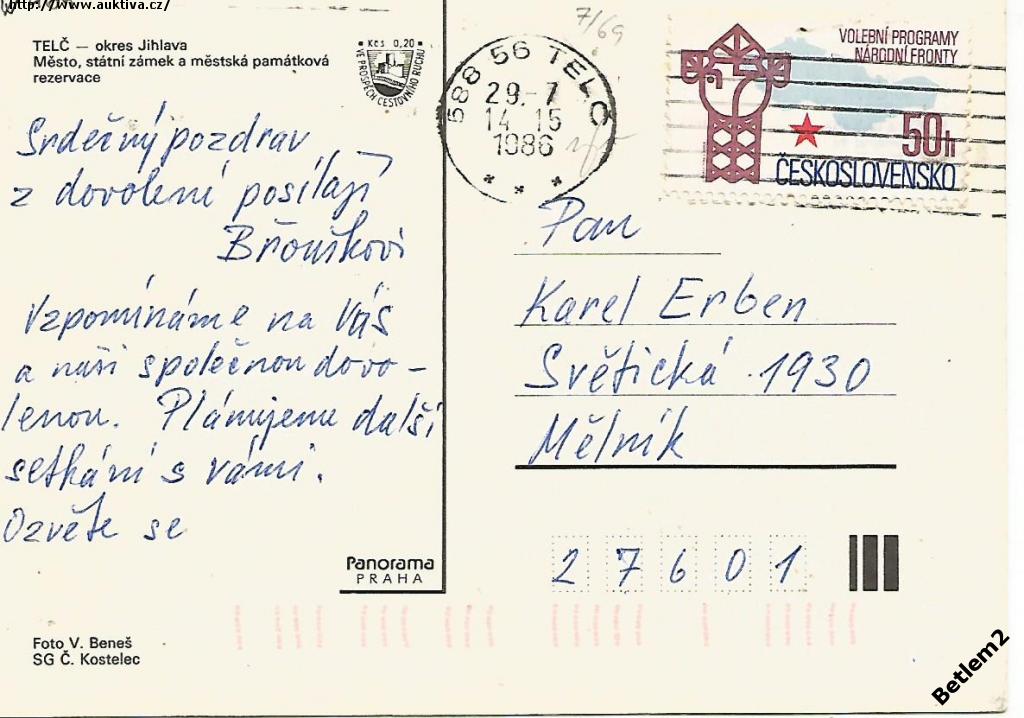 http://www.auktiva.cz/
TELČ — okres Jihlava
Město, státní zámek a městská památková
rezervace
Kčs 0,20
VE PROSPĚCH CESTOVNÍHO RUCHU
7/69
588 56 TELČ
29.-7
14-15
1986
VOLEBNÍ PROGRAMY
NÁRODNÍ FRONTY
50h
ČESKOSLOVENSKO
Srdečný pozdrav
z dovolené posílají
Brouškovi
Vzpomínáme na Vás
a naši společnou dovo-
lenou. Plánujeme další
setkání s vámi.
Ozvěte se
Pan
Karel Erben
Světická 1930
Mělník
27601
Panorama
PRAHA
Foto V. Beneš
SG Č. Kostelec
Betlem2